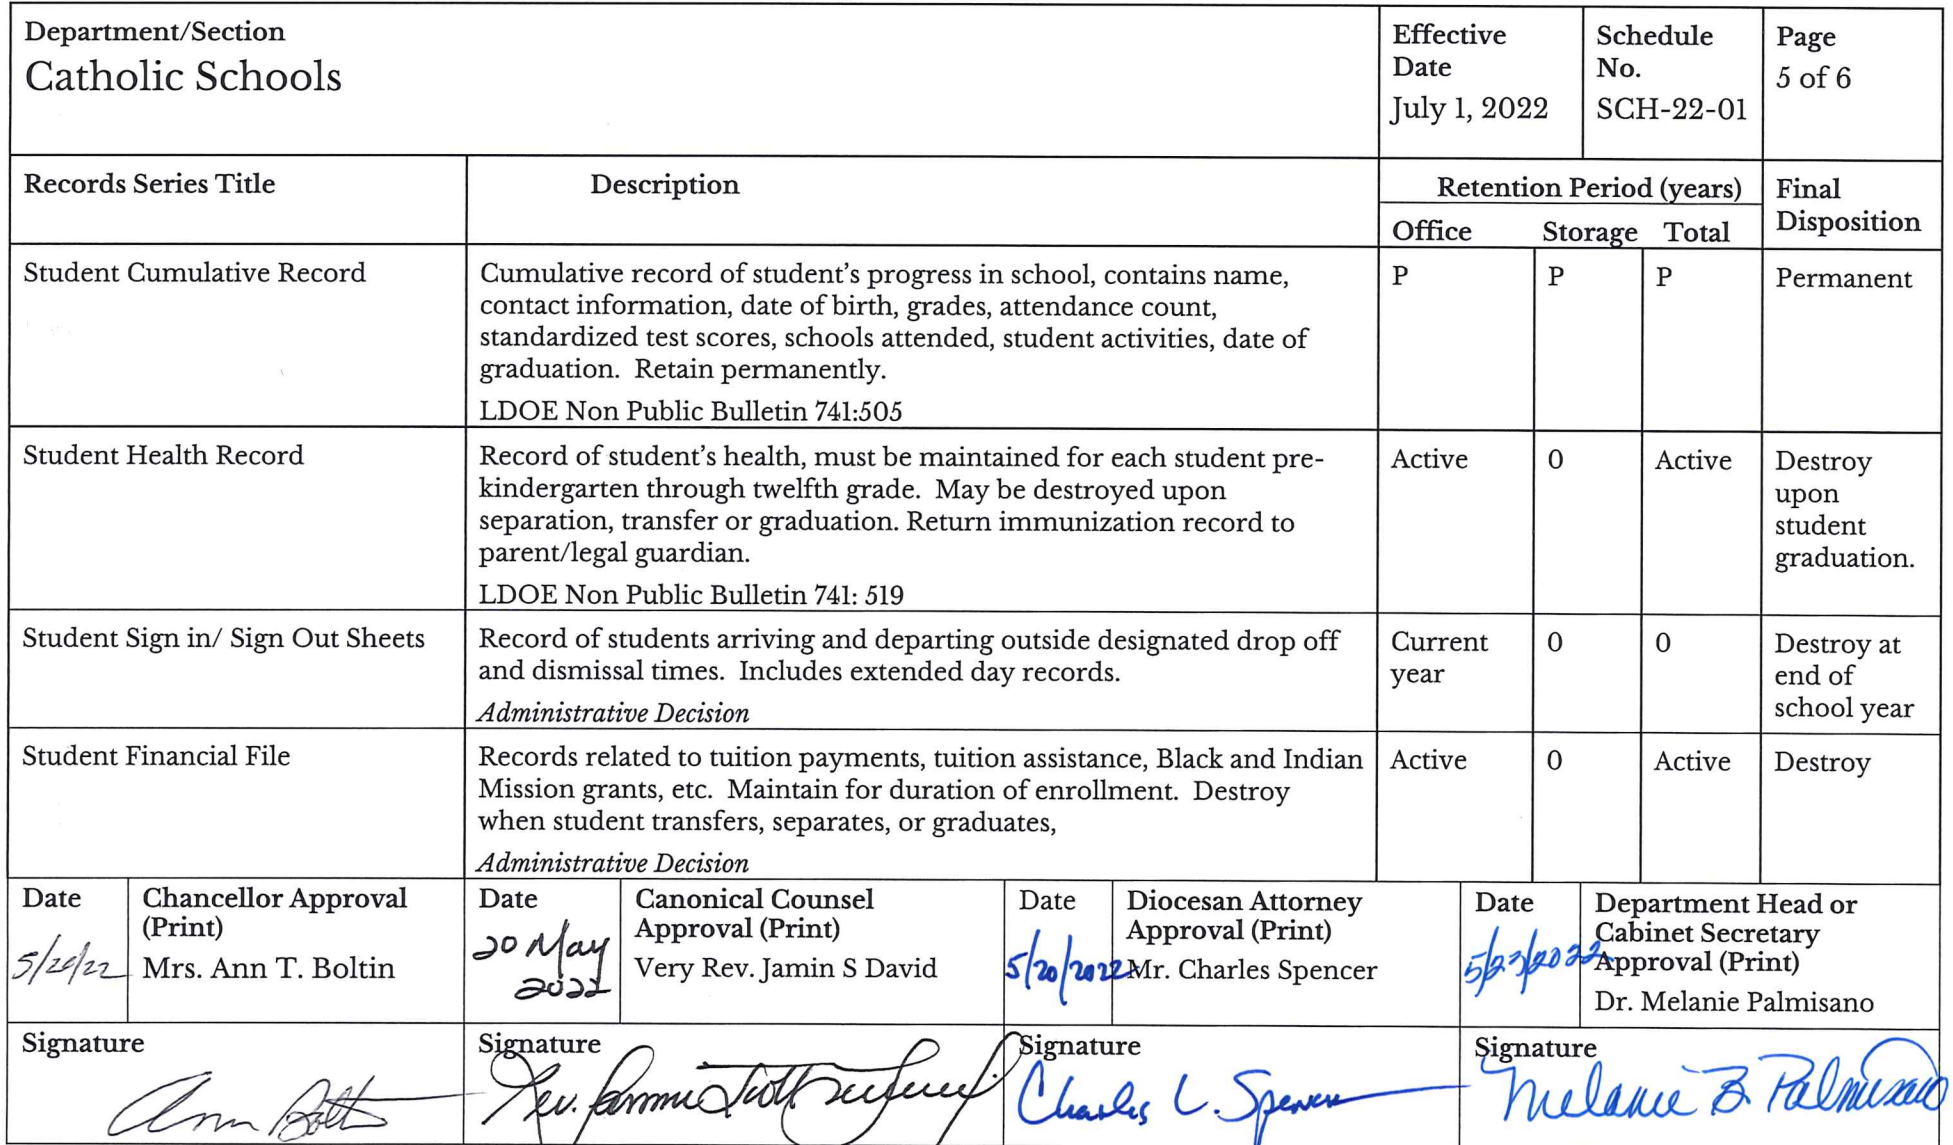 Department/Section
Catholic Schools
Effective
Date
July 1, 2022
Schedule
No.
SCH-22-01
Page
5 of 6
Records Series Title
Description
Retention Period (years)
Office
Storage
Total
Final
Disposition
Student Cumulative Record
Cumulative record of student's progress in school, contains name,
contact information, date of birth, grades, attendance count,
standardized test scores, schools attended, student activities, date of
graduation. Retain permanently.
LDOE Non Public Bulletin 741:505
P
P
P
Permanent
Student Health Record
Record of student's health, must be maintained for each student pre-
kindergarten through twelfth grade. May be destroyed upon
separation, transfer or graduation. Return immunization record to
parent/legal guardian.
LDOE Non Public Bulletin 741: 519
Active
0
Active
Destroy
upon
student
graduation.
Student Sign in/ Sign Out Sheets
Record of students arriving and departing outside designated drop off
and dismissal times. Includes extended day records.
Administrative Decision
Current
year
0
0
Destroy at
end of
school year
Student Financial File
Records related to tuition payments, tuition assistance, Black and Indian
Mission grants, etc. Maintain for duration of enrollment. Destroy
when student transfers, separates, or graduates,
Administrative Decision
Active
0
Active
Destroy
Date
5/20/22
Chancellor Approval
(Print)
Mrs. Ann T. Boltin
Date
20 May
2022
Canonical Counsel
Approval (Print)
Very Rev. Jamin S David
Date
5/20/2022
Diocesan Attorney
Approval (Print)
Mr. Charles Spencer
Date
5/23/2022
Department Head or
Cabinet Secretary
Approval (Print)
Dr. Melanie Palmisano
Signature
Ann Boltin
Signature
Rev.
Signature
Charles L. Spencer
Signature
Melanie B. Palmisano